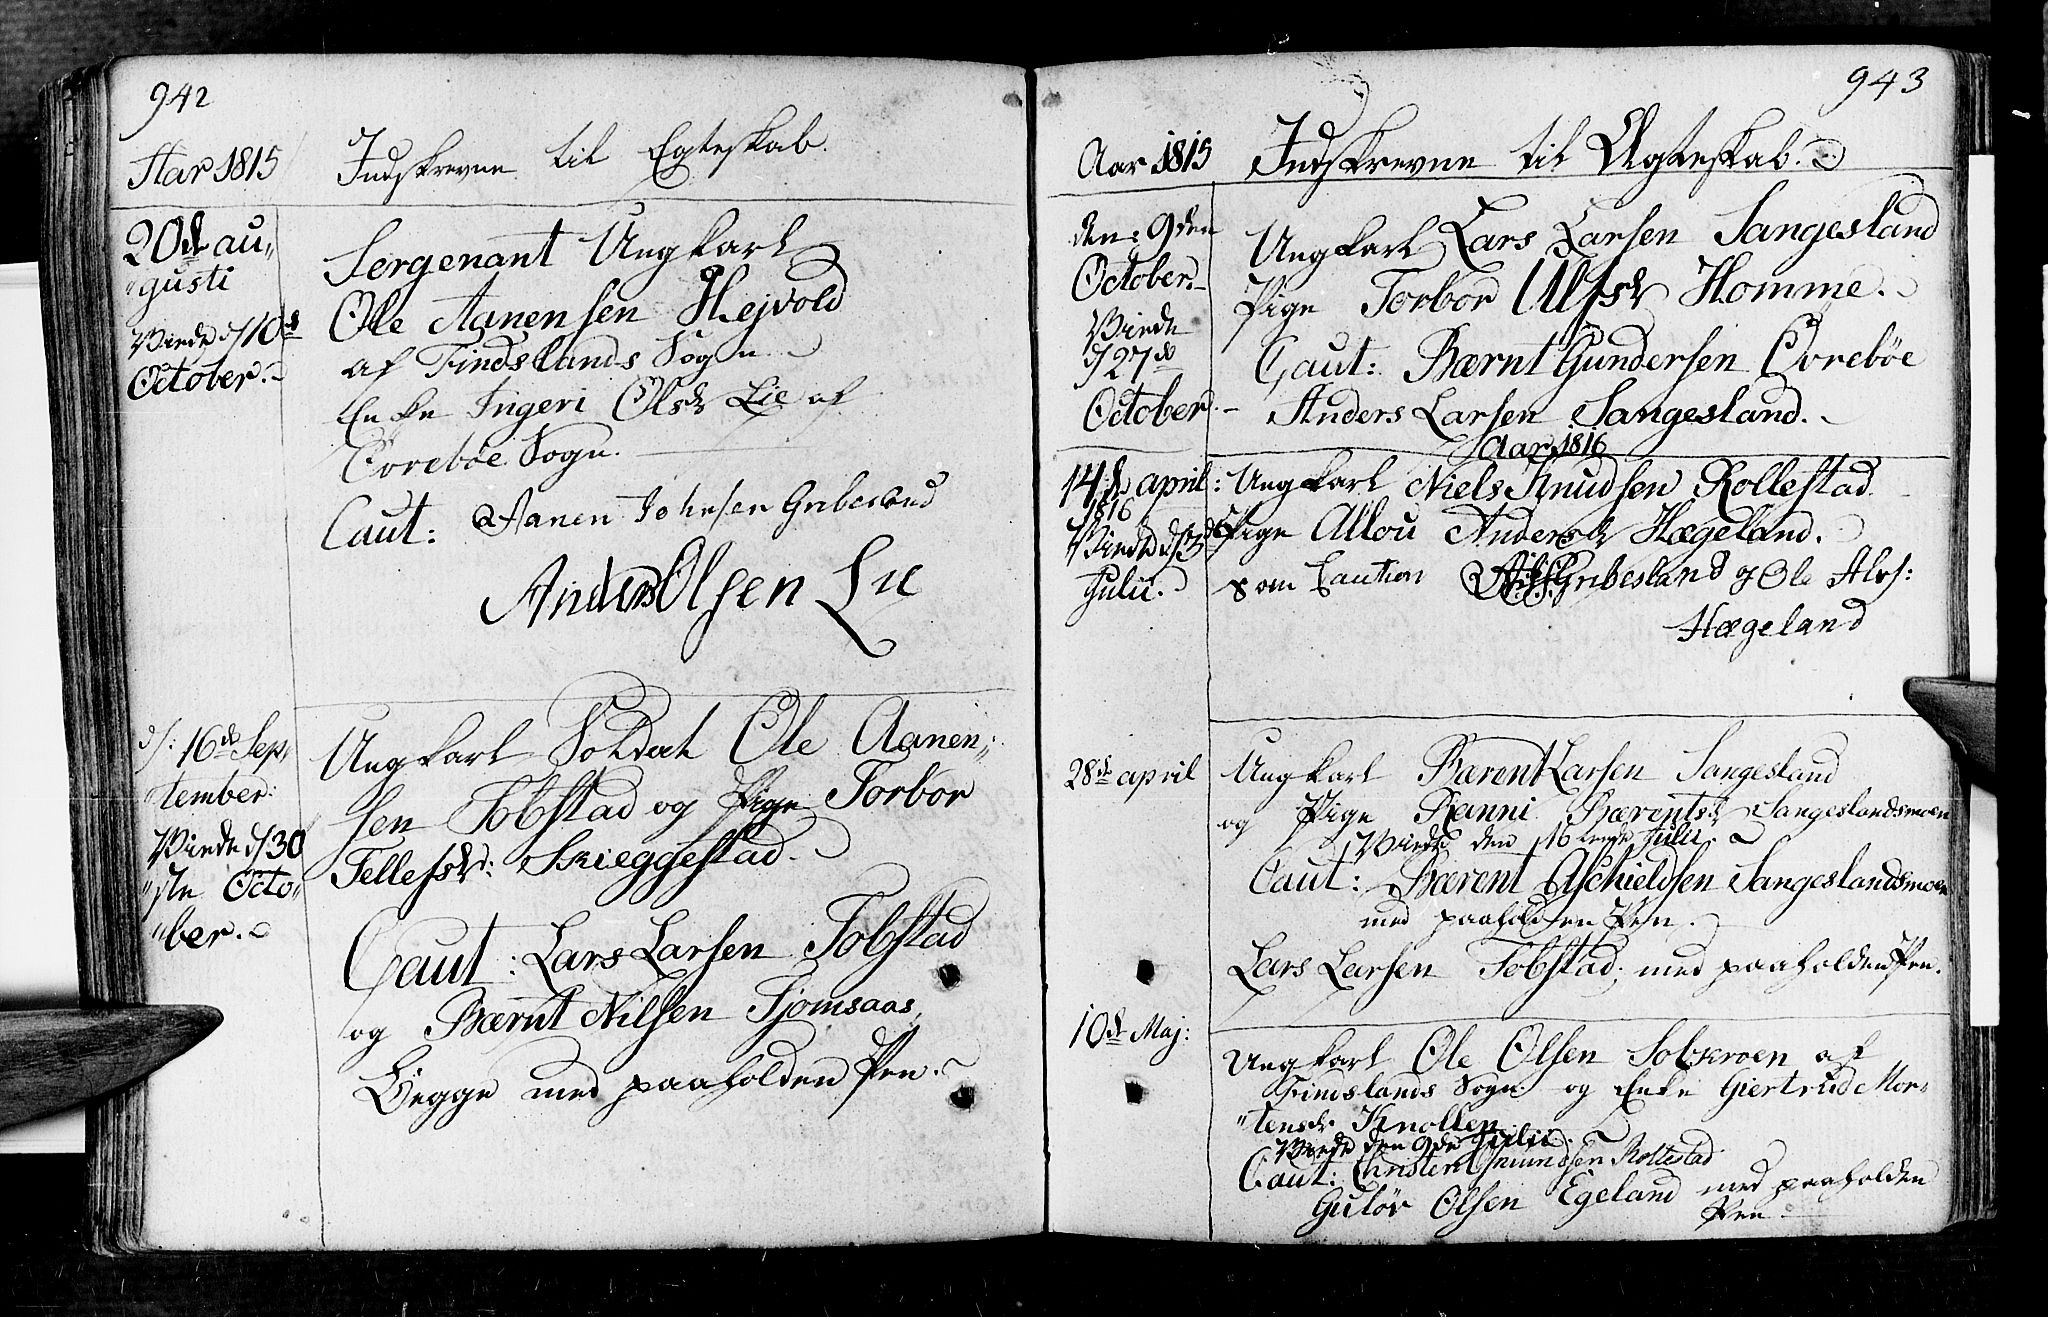 942
Aar 1815
Indskrevne til Egteskab.
20d au-
"gusti
Viede d/10d
October.
Sergenant Ungkarl
Ole Aanensen Hejvold
af Findslands Sogn
Enke Ingeri Olsdr Lie af
Øvrebøe Sogn.
Caut: Aanen Johnsen Gribesland
Anders Olsen Lie
d/: 16de Sep-
tember:
Viede d/30
"ste Octo-
"ber.
Ungkarl Soldat Ole Aanen-
sen Tobstad og Pige Torbor
Tellefsdr: Skieggestad.
Caut: Lars Larsen Tobstad
og Bærnt Nilsen Fjomsaas,
Begge med paaholden Pen.
943
Aar 1815
Indskrevne til Ægteskab.
den: 9den
October.
Viede
d/27de
October.
Ungkarl Lars Larsen Sangesland
Pige Torbor Ulfsdr Homme.
Caut: Bærnt Gundersen Øvrebøe
Anders Larsen Sangesland.
Aar 1816
14de april:
1816
Viede d/3de
Julii.
Ungkarl Niels Knudsen Rollestad
Pige Allou Andersdr Hægeland.
som Caution Gribesland og Ole Alvs:
Hægeland
28de april
Ungkarl Bærent Larsen Sangesland
og Pige Ranni Bærentsd: Sangeslandsmoen
Viede den 16 Julii.
Caut: Bærent Aschieldsen Sangeslandsmoen
med paaholden Pen.
Lars Larsen Tobstad, med paaholden Pen.
10de Maj:
Ungkarl Ole Olsen Sobkroen af
Findslands Sogn og Enke Giertrud Mor-
"tensdr Knollen
Viede den 9de Julii.
Caut: Christen Gmundsen Rollestad
Guløv Olsen Egeland med paaholden
Pen